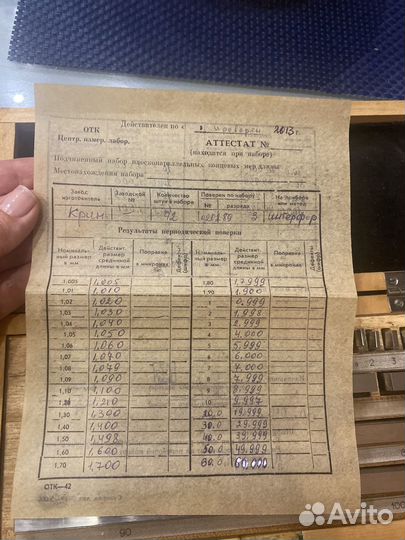 ОТК
Действителен по с февраля 2013 г.
Центр. измер. лабор.
АТТЕСТАТ №
(находится при наборе)
Подчиненный набор плоскопараллельных концевых мер длины
Местонахождения набора
Завод изготовитель Заводской № Количество штук в наборе Поверен по набору № разряда На приборе или метод
Крин 92 3 интерфер
Результаты периодической поверки
Номинальный размер в мм Действит. размер срединной длины в мм Поправка в микронах Дефекты (шифр) Номинальный размер в мм Действит. размер срединной длины в мм Поправка в микронах Дефекты (шифр)
1,005 1,005 1,80 1,7999
1,01 1,010 1,90 1,900
1,02 1,020 1 0,999
1,03 1,030 2 1,998
1,04 1,040 3 2,999
1,05 1,050 4 4,000
1,06 1,060 5 5,999
1,07 1,070 6 6,000
1,08 1,079 7 7,000
1,09 1,090 8 7,999
1,10 1,100 9 8,999
1,20 1,210 10 9,997
1,30 1,300 20,0 19,999
1,40 1,400 30,0 29,999
1,50 1,498 40,0 39,999
1,60 1,600 50,0 49,999
1,70 1,700 60,0 60,000
ОТК—42
90
2 3
100
Avito